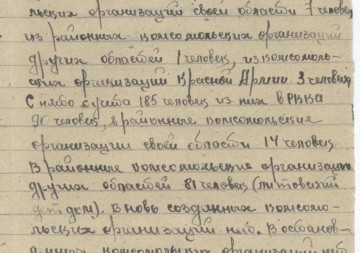 льских организаций своей области 7 человек
из районных комсомольских организаций
других областей 1 человек, из комсомоль-
ских организаций Красной Армии 3 человека.
Снято с учета 185 человек из них в РККА
90 человек, в районные комсомольские
организации своей области 14 человек
В районные комсомольские организации
других областей 81 человек (литовский
дет дом). Вновь созданных комсомо-
льских организаций нет. В останов-
комсомольских организаций нет